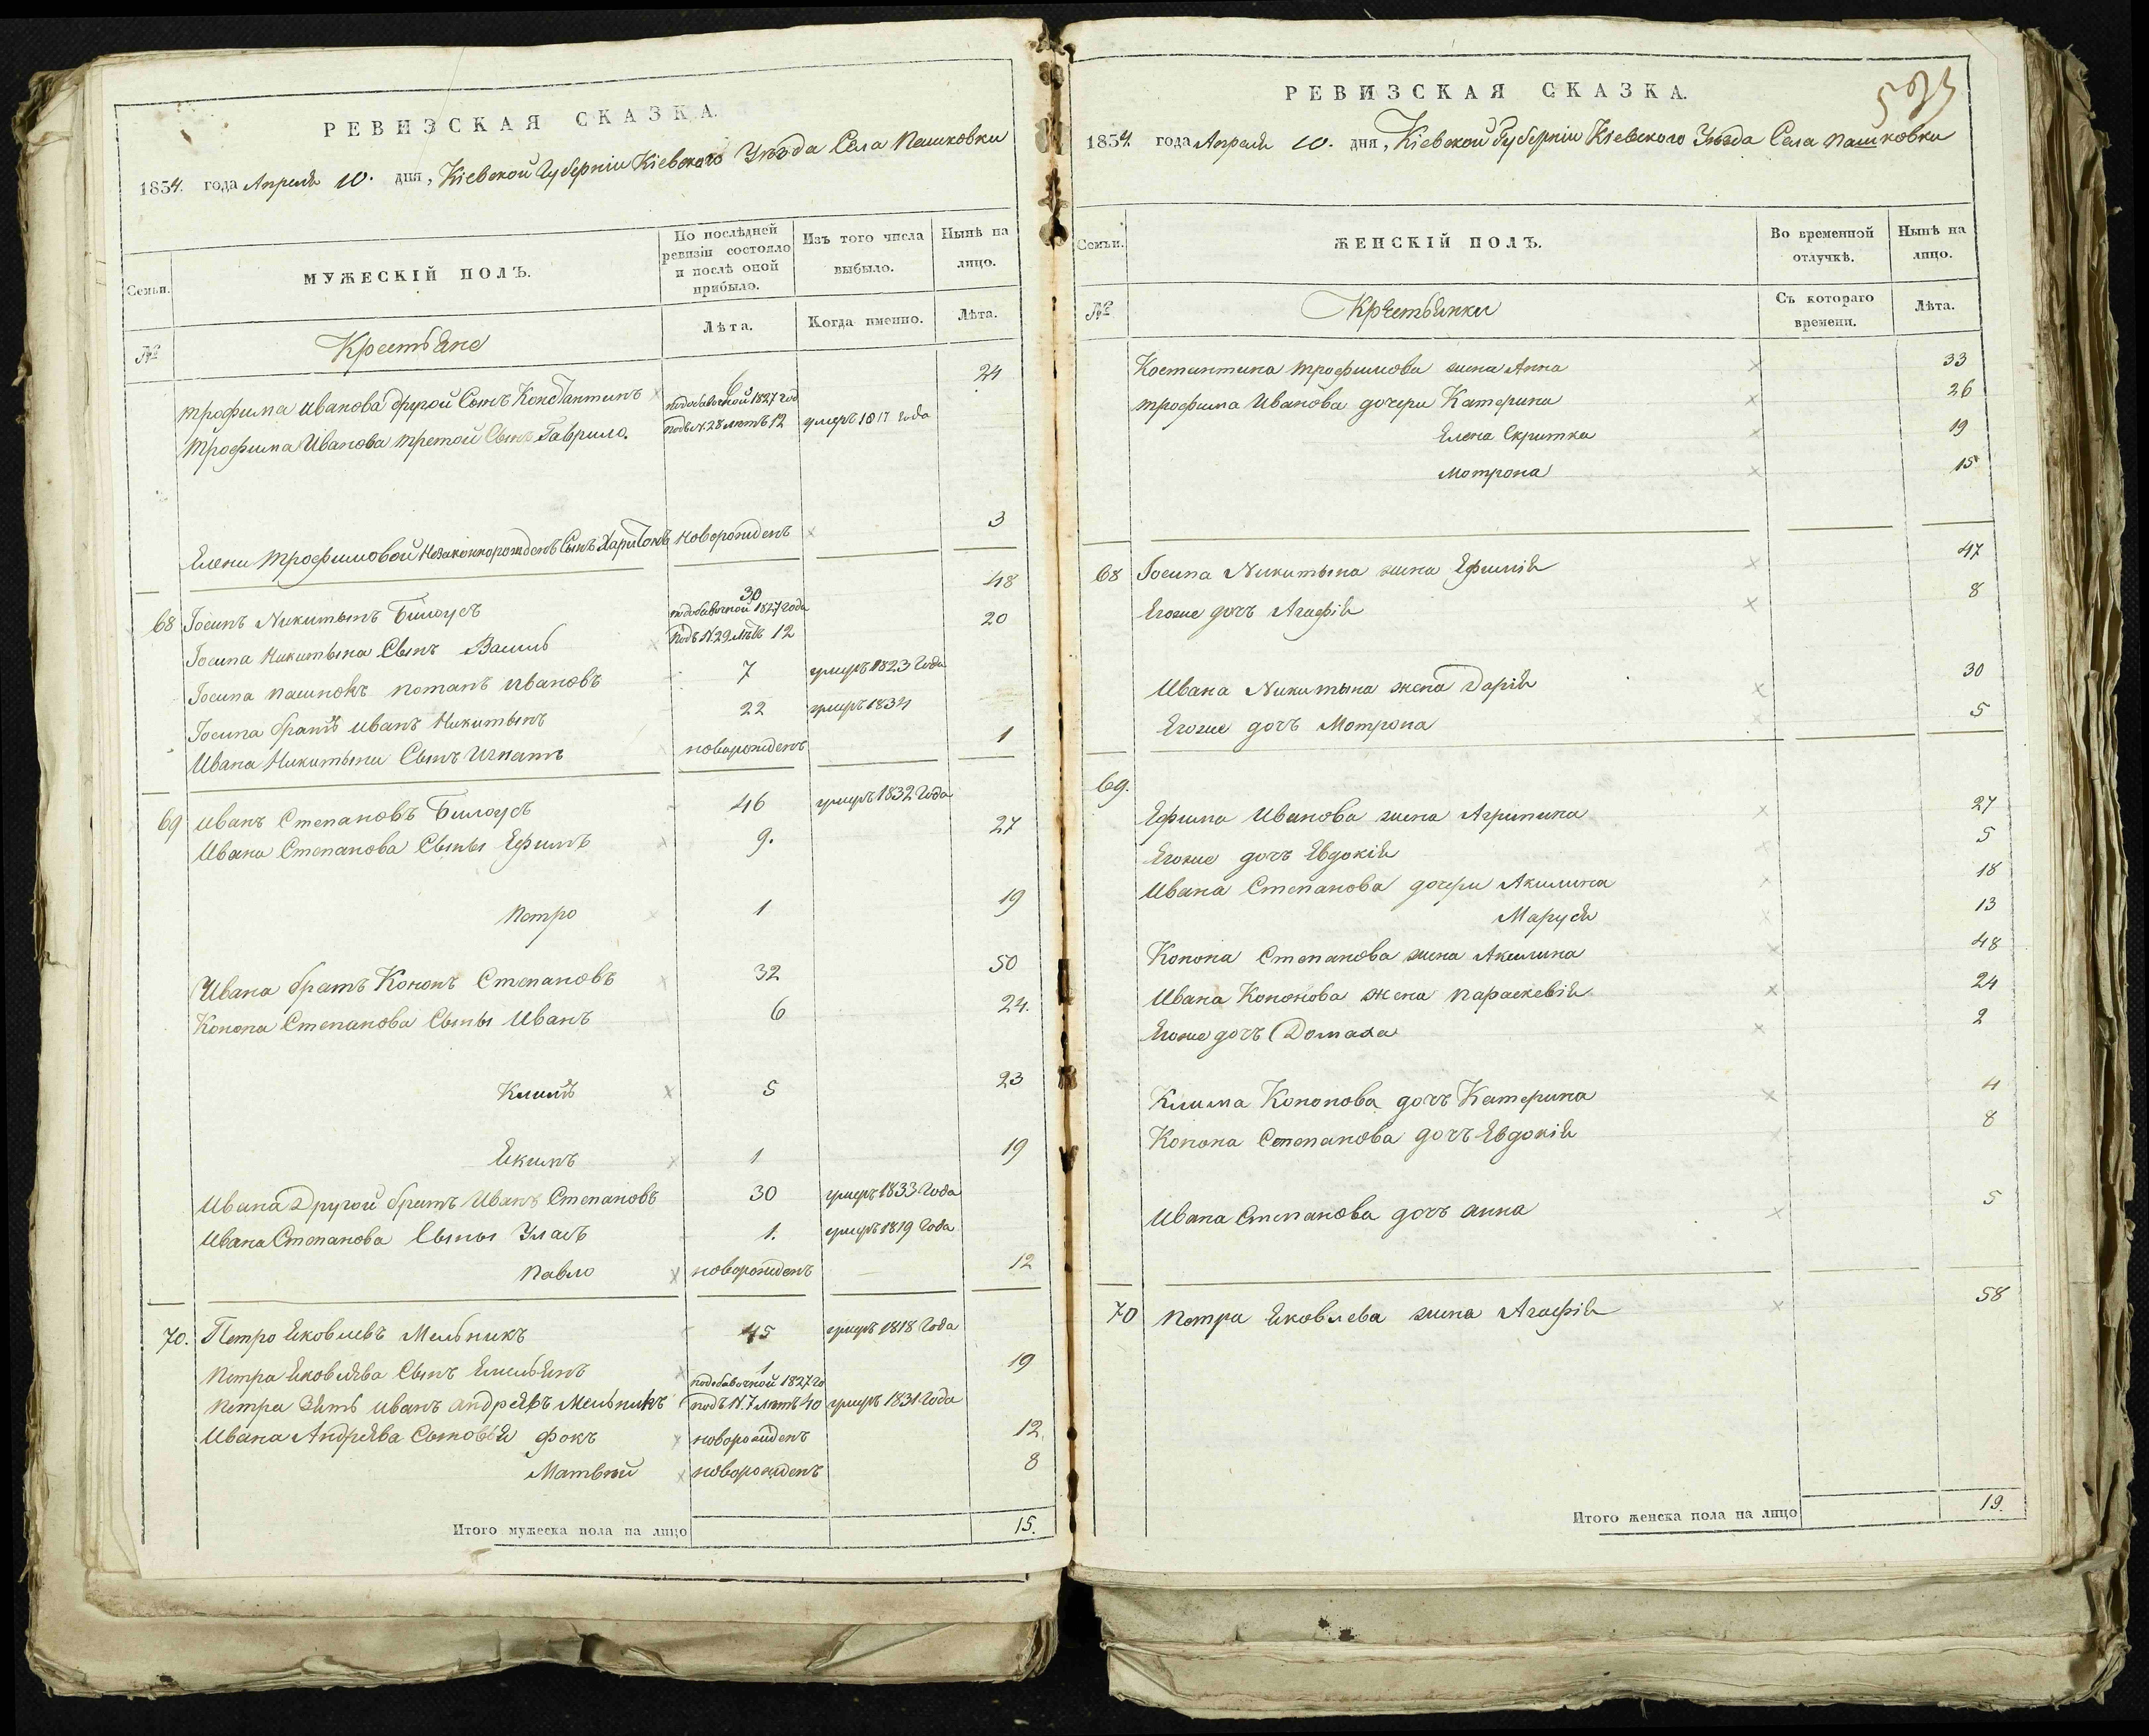 РЕВИЗСКАЯ СКАЗКА.
1834. года Апреля 10. дня, Кіевской Губерніи Кіевского Уезда Села Пашковки
Семьи.
МУЖЕСКІЙ ПОЛЪ.
По послѣдней ревизіи состояло и послѣ оной прибыло.
Изъ того числа выбыло.
Нынѣ на лицо.
№
Крестьяне
Лѣта.
Когда именно.
Лѣта.
Трофима Иванова другой Сынъ Константинъ 6 24
подобавочной 1827 год
Трофима Иванова третой Сынъ Гаврило. подъ N. 28 летъ 12 умеръ 18 года
Елены Трофимовой Незаконнорожденъ Сынъ Харитонъ новорожденъ 3
68 Іосипъ Никитынъ Билоусъ 30 48
подобавочной 1827 года
Іосипа Никитына Сынъ Василь подъ N. 29 летъ 12 20
Іосипа пасинокъ Потапъ Ивановъ 7 умеръ 1823 года
Іосипа братъ Иванъ Никитынъ 22 умеръ 1834
Ивана Никитына Сынъ Игнатъ новорожденъ 1
69 Иванъ Степановъ Билоусъ 46 умеръ 1832 Года
Ивана Степанова Сыны Ефимъ 9. 27
Петро 1 19
Ивана братъ Кононъ Степановъ 32 50
Конона Степанова Сыны Иванъ 6 24.
Климъ 5 23
Екимъ 1 19
Ивана Другой братъ Иванъ Степановъ 30 умеръ 1833 Года
Ивана Степанова Сыны Уласъ 1. умеръ 1819 Года
Павло новорожденъ 12
70. Петро Яковлевъ Мельникъ 45 умеръ 1818 Года
Петра Яковлева Сынъ Емельянъ 1 19
подобавочной 1827 го
Петра Зять Иванъ Андреевъ Мельникъ подъ N. 7 летъ 40 умеръ 1831 Года
Ивана Андреева Сыновья Фокъ новорожденъ 12.
Матвей новорожденъ 8
Итого мужеска пола на лицо 15.
РЕВИЗСКАЯ СКАЗКА.
1834. года Апреля 10. дня, Кіевской Губерніи Кіевского Уезда Села Пашковки
Семьи.
ЖЕНСКІЙ ПОЛЪ.
Во временной отлучкѣ.
Нынѣ на лицо.
№
Крестьянки
Съ котораго времени.
Лѣта.
Костинтина Трофимова жена Анна 33
Трофима Иванова дочери Катерина 26
Елена Скритка 19
Мотрона 15
68 Іосипа Никитына жена Ефимія 47
Егоже дочъ Агафія 8
Ивана Никитына жена Дарія 30
Егоже дочъ Мотрона 5
69.
Ефима Иванова жена Агрипина 27
Егоже дочъ Евдокія 5
Ивана Степанова дочери Акилина 18
Маруся 13
Конона Степанова жена Акилина 48
Ивана Кононова жена Параскевія 24
Егоже дочъ Домаха 2
Клима Кононова дочъ Катерина 4
Конона Степанова дочъ Евдокія 8
Ивана Степанова дочъ Анна 5
70 Петра Яковлева жена Агафія 58
Итого женска пола на лицо 19.